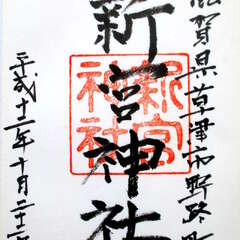 滋賀県草津市野路町
新宮神社
新宮
神社
平成十二年十月二十二